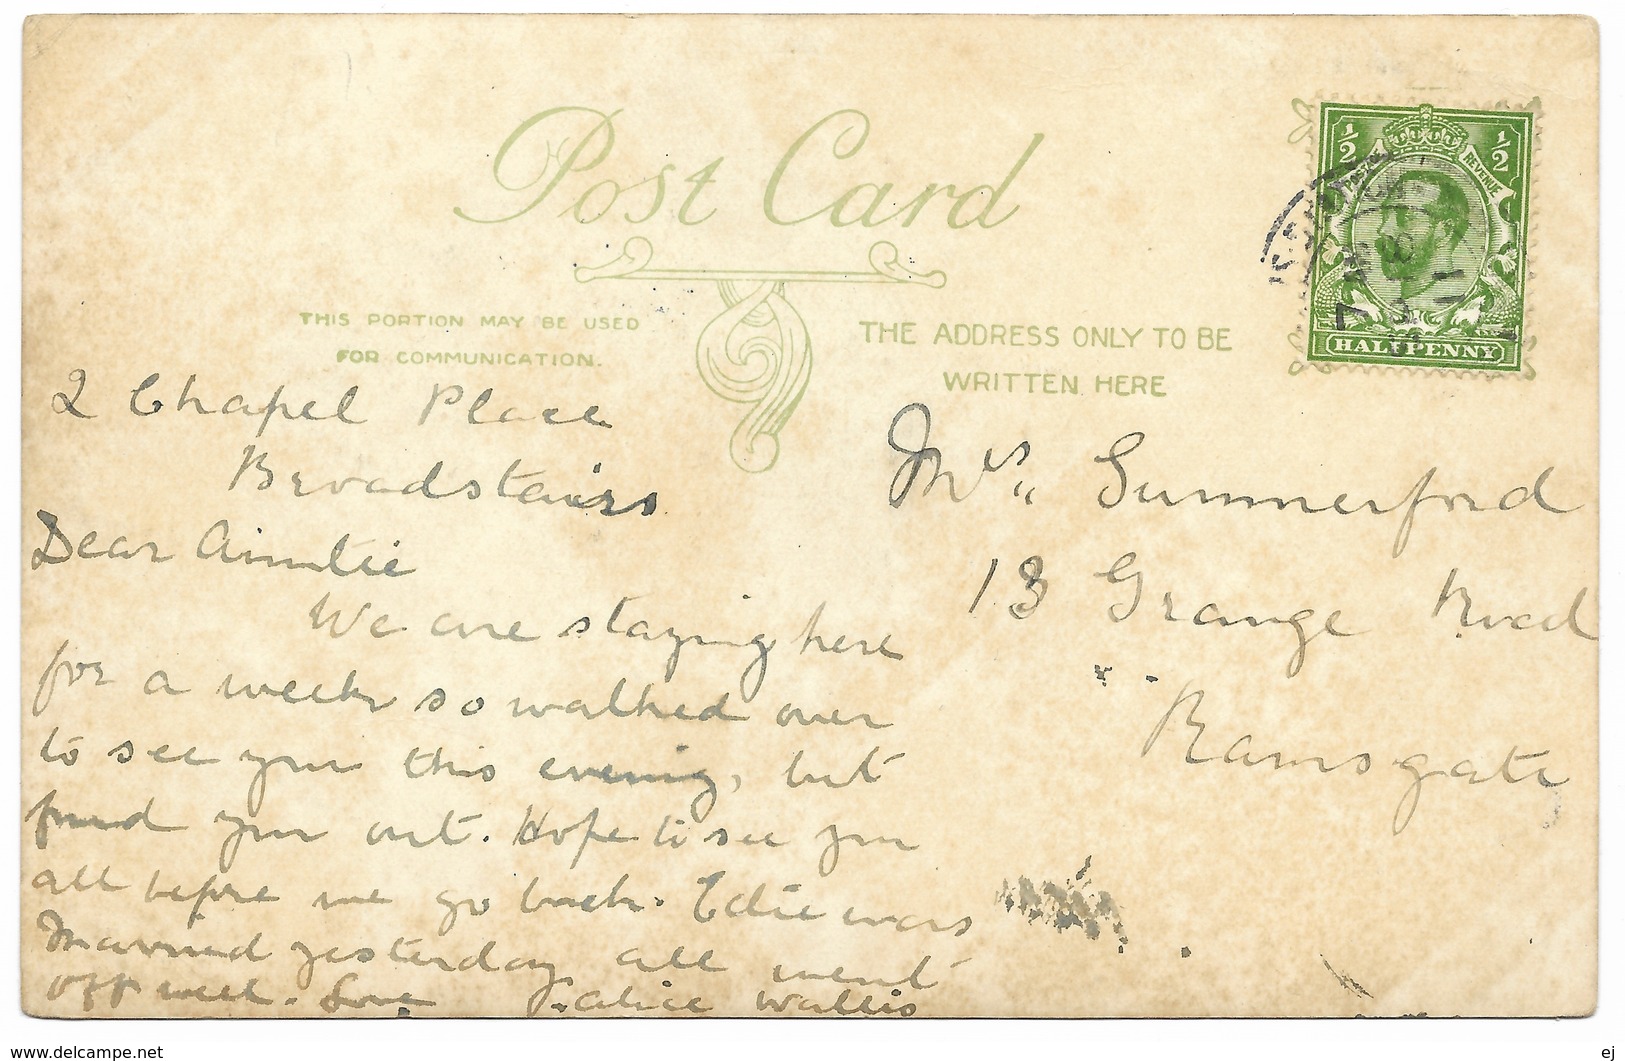 Post Card
THIS PORTION MAY BE USED
FOR COMMUNICATION.
THE ADDRESS ONLY TO BE
WRITTEN HERE
½ ½
POSTAGE REVENUE
HALFPENNY
2 Chapel Place
Broadstairs
Dear Auntie
We are staying here
for a week so walked over
to see you this evening, but
found you out. Hope to see you
all before we go back. Edie was
Married yesterday all went
off well. Love Alice Wallis
Mrs Summerford
13 Grange Road
Ramsgate
www.delcampe.net
ej